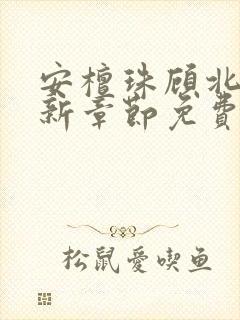 安檀珠顾北
新章節免費
松鼠愛喫鱼